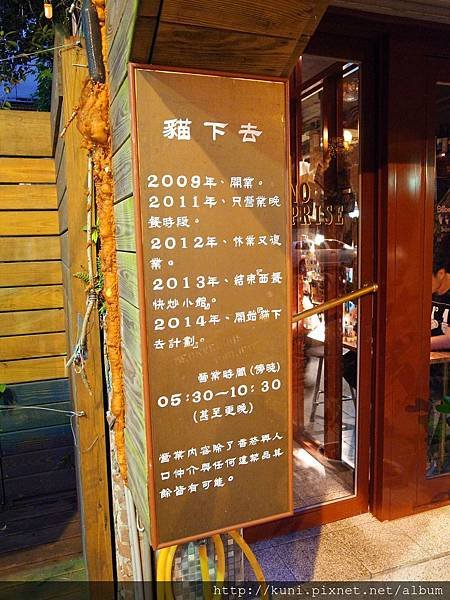 貓下去
2009年、開業。
2011年、只營業晚
餐時段。
2012年、休業又復
業。
2013年、結束西餐
快炒小館。
2014年、開始貓下
去計劃。
營業時間(傍晚)
05:30~10:30
(甚至更晚)
營業內容除了香菸與人
口仲介與任何違禁品其
餘皆有可能。
NO
PRISE
http://kuni.pixnet.net/album